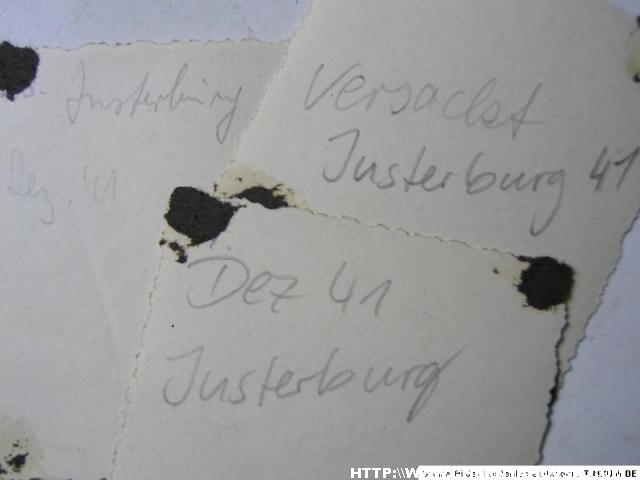 Insterburg
Dez. '41
Versackt
Insterburg 41
Dez 41
Insterburg